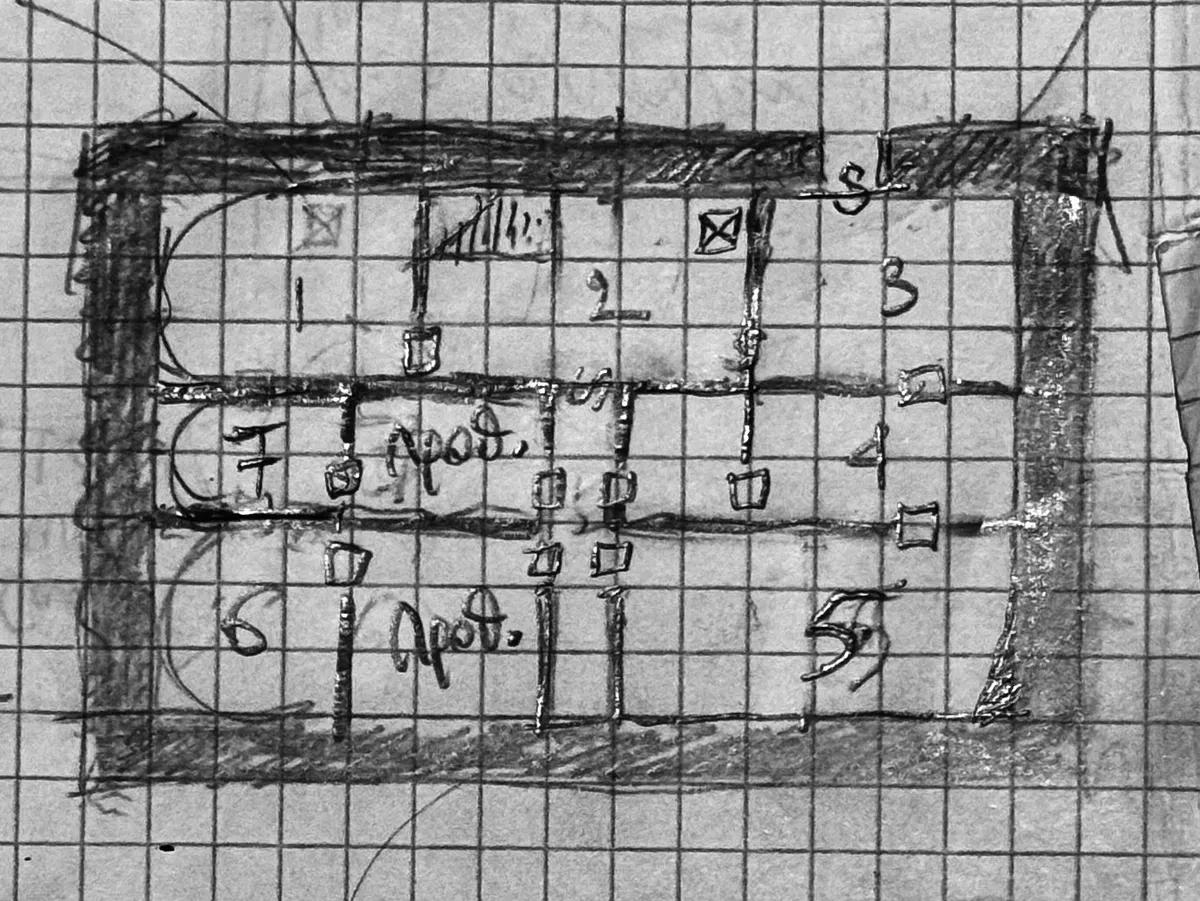 S
1
2
3
S
7
Прод.
4
6
Прод.
5